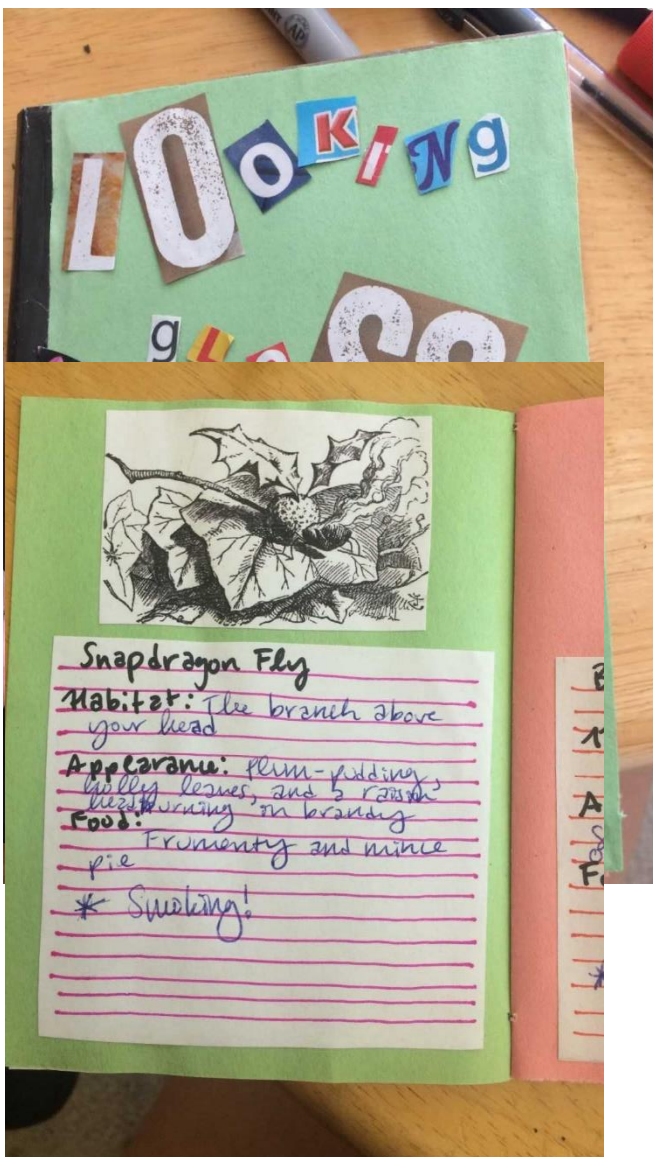 LOOKiNg
gl
Snapdragon Fly
Habitat: The branch above
your head
Appearance: Plum-pudding,
holly leaves, and a raisin
head burning in brandy
Food:
Frumenty and mince
pie
* Smoking!
A
*